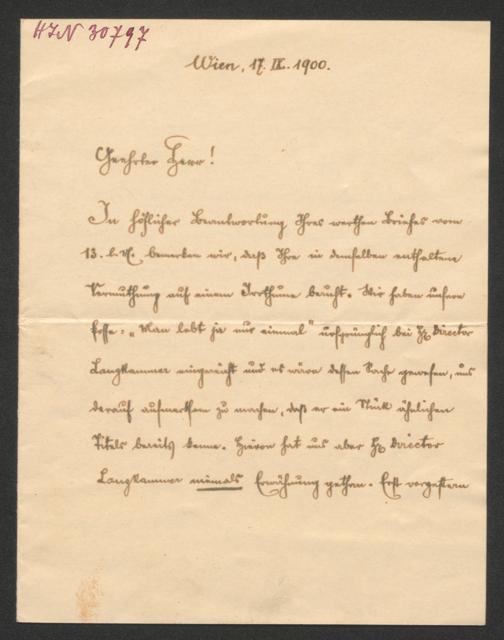 HIN 30797
Wien, 17. IX. 1900.
Geehrter Herr!
In höflicher Beantwortung Ihres werthen Briefes vom
13. l. M. bemerken wir, daß Ihre in demselben enthaltene
Vermuthung auf einem Irrthume beruht. Wir haben unsere
Posse: „Man lebt ja nur einmal" ursprünglich bei H. Director
Langkammer eingereicht und es wäre dessen Sache gewesen, uns
darauf aufmerksam zu machen, daß er ein Stück ähnlichen
Titels bereits kenne. Hievon hat uns aber H. Director
Langkammer niemals Erwähnung gethan. Erst vorgestern